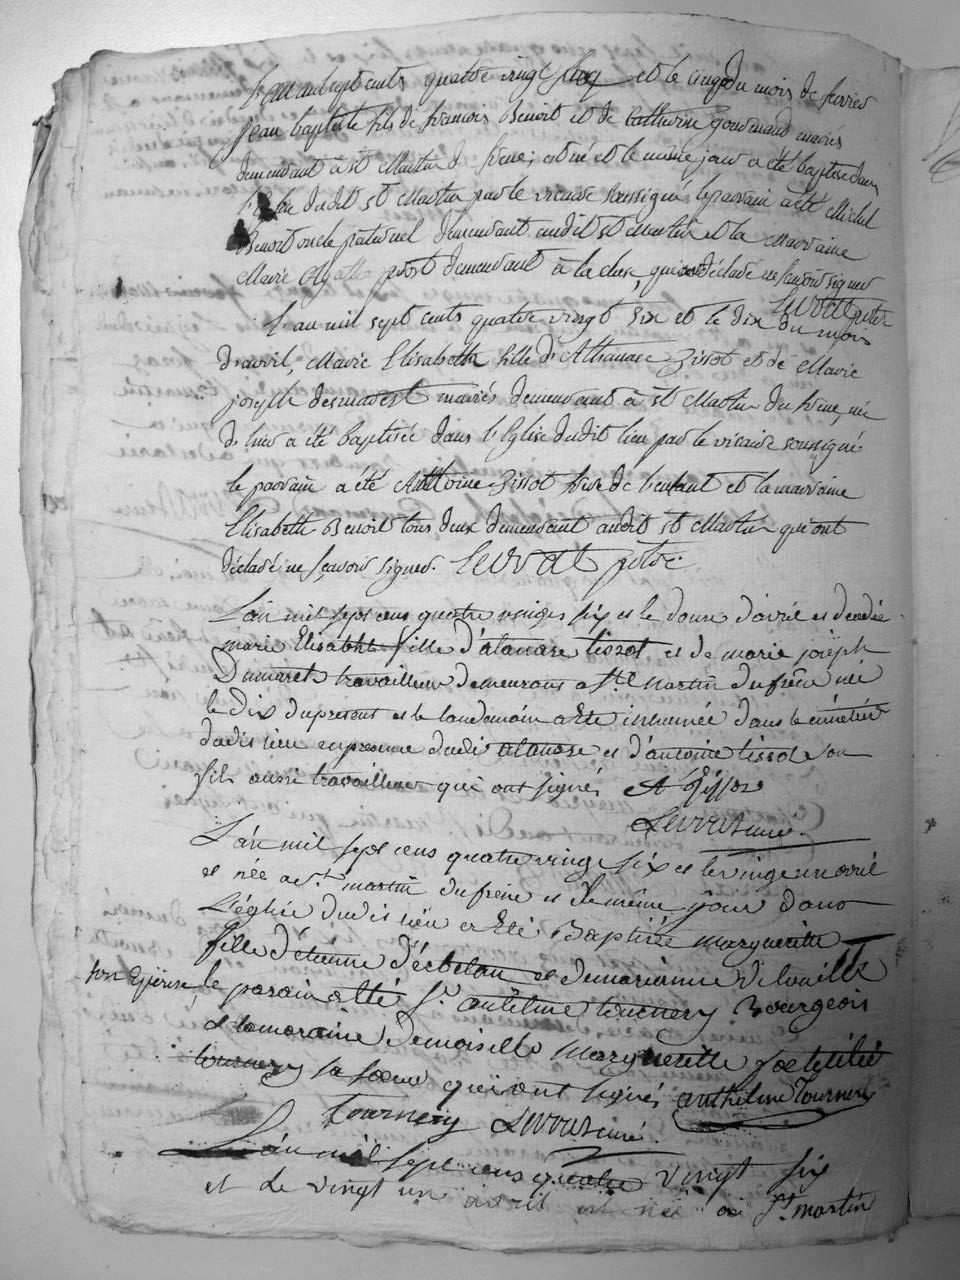 L'an mil sept cents quatre vingt six et le cinq du mois de fevrier
jean baptiste fils de francois Benoit et de Catherine mariés
demeurant à st Martin du frene; est né et le même jour a été baptisé dans
dudit st Martin par le vicaire soussigné le parrain a été Michel
Benoit oncle paternel demeurant audit st Martin et la Marraine
Marie demeurant à la cluse, qui ont déclaré ne scavoir signer
L'an mil sept cents quatre vingt six et le dix du mois
d'avril, Marie Elisabeth fille d'Athanase Tissot et de Marie
joseph desmarest mariés demeurant à st Martin du frene, née
d'hier a été baptisée dans l'Eglise dudit lieu par le vicaire soussigné
le parrain a été Anthoine Tissot frere de l'enfant et la marraine
Elisabeth Benoit tous deux demeurant audit st Martin qui ont
déclaré ne scavoir signer.
L'an mil sept cens quatre vingts six et le douze d'avril est decedée
marie Elisabeth fille d'atanase tissot et de marie joseph
Dumarets travailleur demeurans a st martin du frêne née
le dix du present et le landemain a Eté inhumée dans le cimetière
dudit lieu en presence dudit atanase et d'antoine tissot son
fils aussi travailleur qui ont signés A tissot
curé.
L'an mil sept cens quatre vingt six et le vingt un avril
est née a st martin du frêne et le même jour dans
l'église dudit lieu a Eté Baptisée marguerite
fille d'étienne et de marianne
son Epouse, le parain a été sr antelme tournery Bourgeois
et la maraine demoiselle marguerite
tournery sa soeur qui ont signés anthelme Tournery
tournery curé.
L'an mil sept cens quatre vingt six
et le vingt un avril est née a st martin